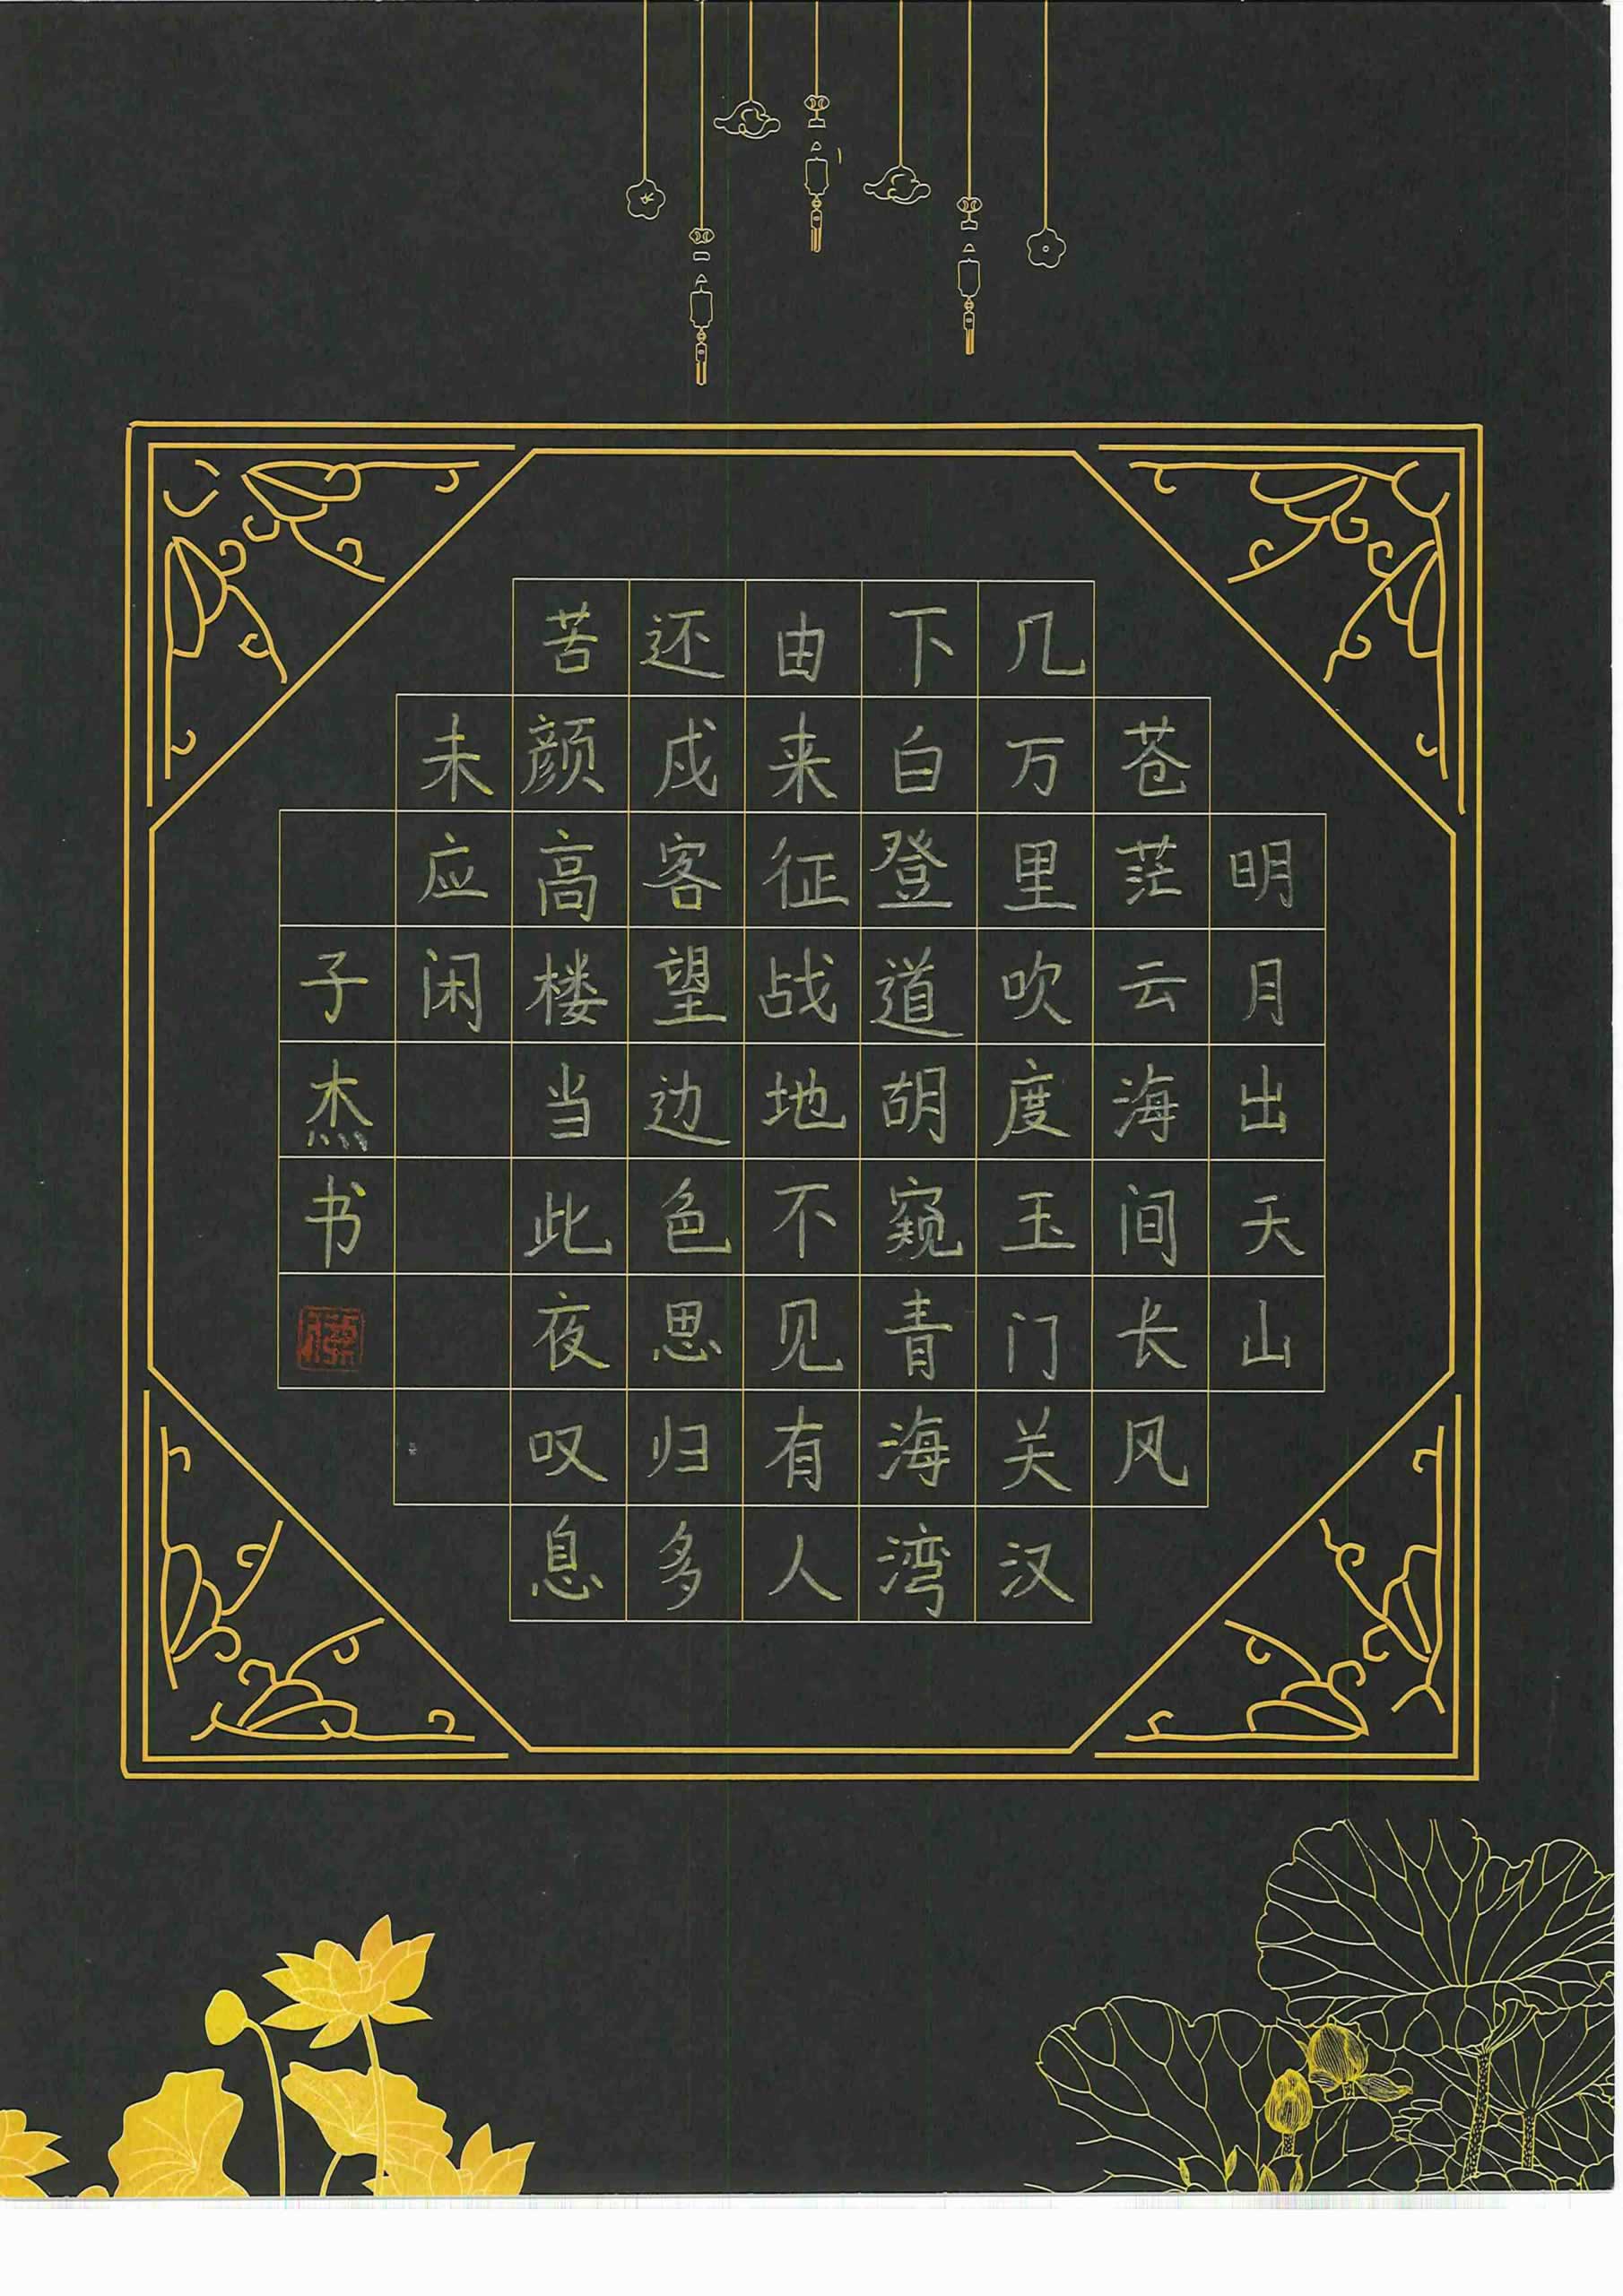 明月出天山
苍茫云海间长风
几万里吹度玉门关汉
下白登道胡窥青海湾
由来征战地不见有人
还戍客望边色思归多
苦颜高楼当此夜叹息
未应闲
子杰书